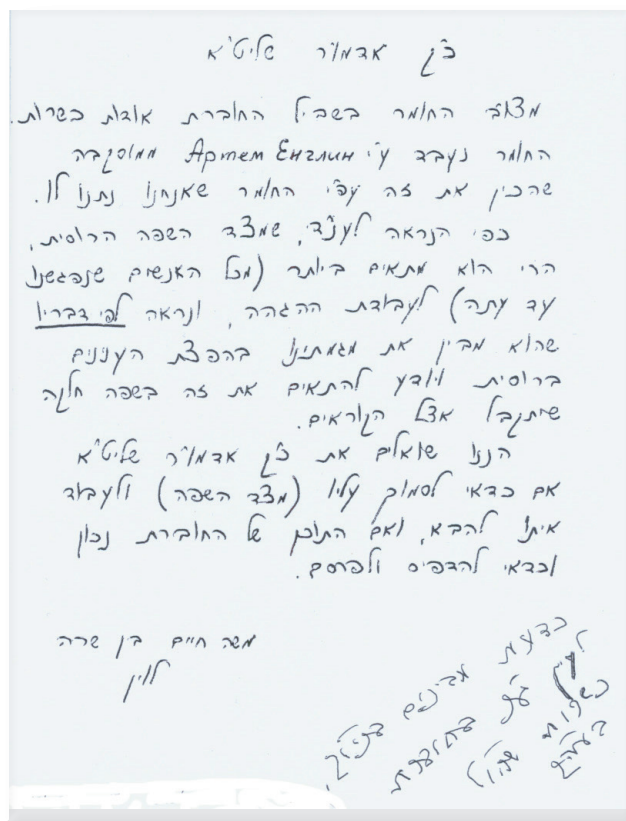 כ"ק אדמו"ר שליט"א
מצו"ב החומר בשביל החוברת אודות כשרות.
החומר נעבד ע"י АртемЕнзлин ממוסקבה
שהכין את זה עפ"י החומר שאנחנו נתנו לו.
כפי הנראה לענ"ד, שמצד השפה הרוסית,
הרי הוא מתאים ביותר (מכל האנשים שנפגשנו
עד עתה) לעבודת ההגהה, ונראה לפי דבריו
שהוא מבין את מגמתינו בהפצת הענינים
ברוסית ויודע להתאים את זה בשפה חלקה
שיתקבל אצל הקוראים.
הננו שואלים את כ"ק אדמו"ר שליט"א
אם כדאי לסמוך עליו (מצד השפה) ולעבוד
איתו להבא, ואם התוכן של החוברת נכון
וכדאי להדפיס ולפרסם.
משה חיים בן שרה
לוין
כדעת מבינים